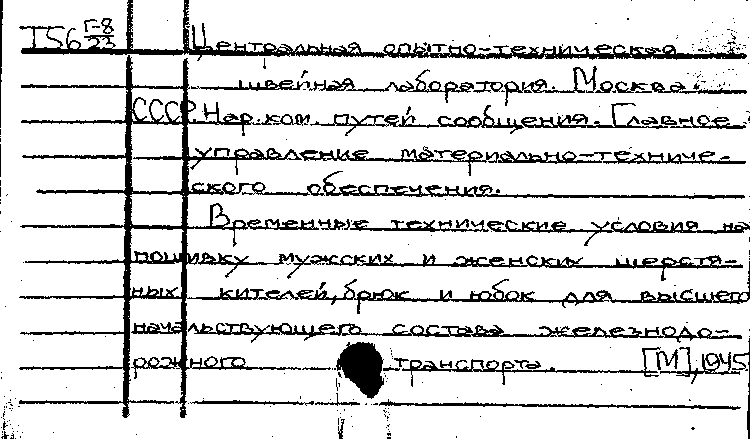 Т56 Г-8/23 Центральная опытно-техническая
швейная лаборатория. Москва.
СССР. Нар. ком. путей сообщения. Главное
управление материально-техниче-
ского обеспечения.
Временные технические условия на
пошивку мужских и женских шерстя-
ных кителей, брюк и юбок для высшего
начальствующего состава железнодо-
рожного транспорта. [М], 1945